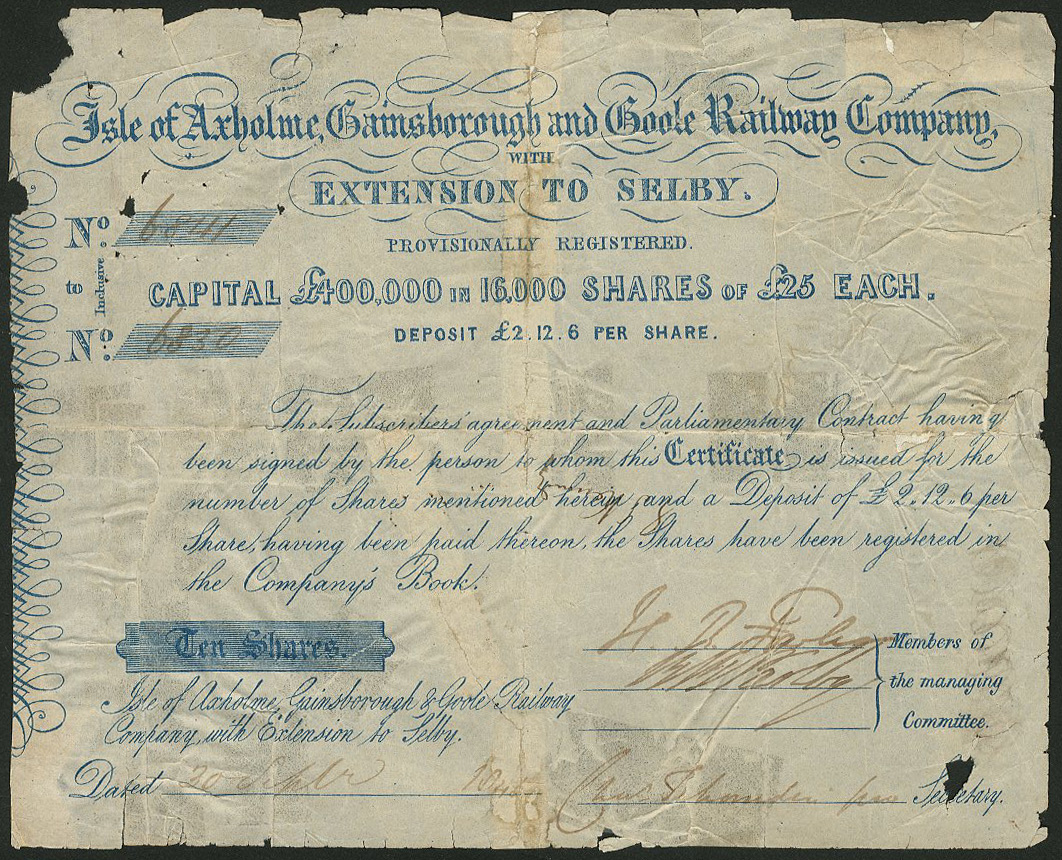 Isle of Axholme, Gainsborough and Goole Railway Company,
WITH
EXTENSION TO SELBY.
PROVISIONALLY REGISTERED.
No.
to Inclusive
No.
CAPITAL £400,000 IN 16,000 SHARES OF £25 EACH.
DEPOSIT £2.12.6 PER SHARE.
The Subscribers' agreement and Parliamentary Contract having
been signed by the person to whom this Certificate is issued for the
number of Shares mentioned herein, and a Deposit of £2.12.6 per
Share, having been paid thereon, the Shares have been registered in
the Company's Book.
Ten Shares.
Members of
the managing
Committee.
Isle of Axholme, Gainsborough & Goole Railway
Company, with Extension to Selby.
Dated 20 Septbr
Secretary.